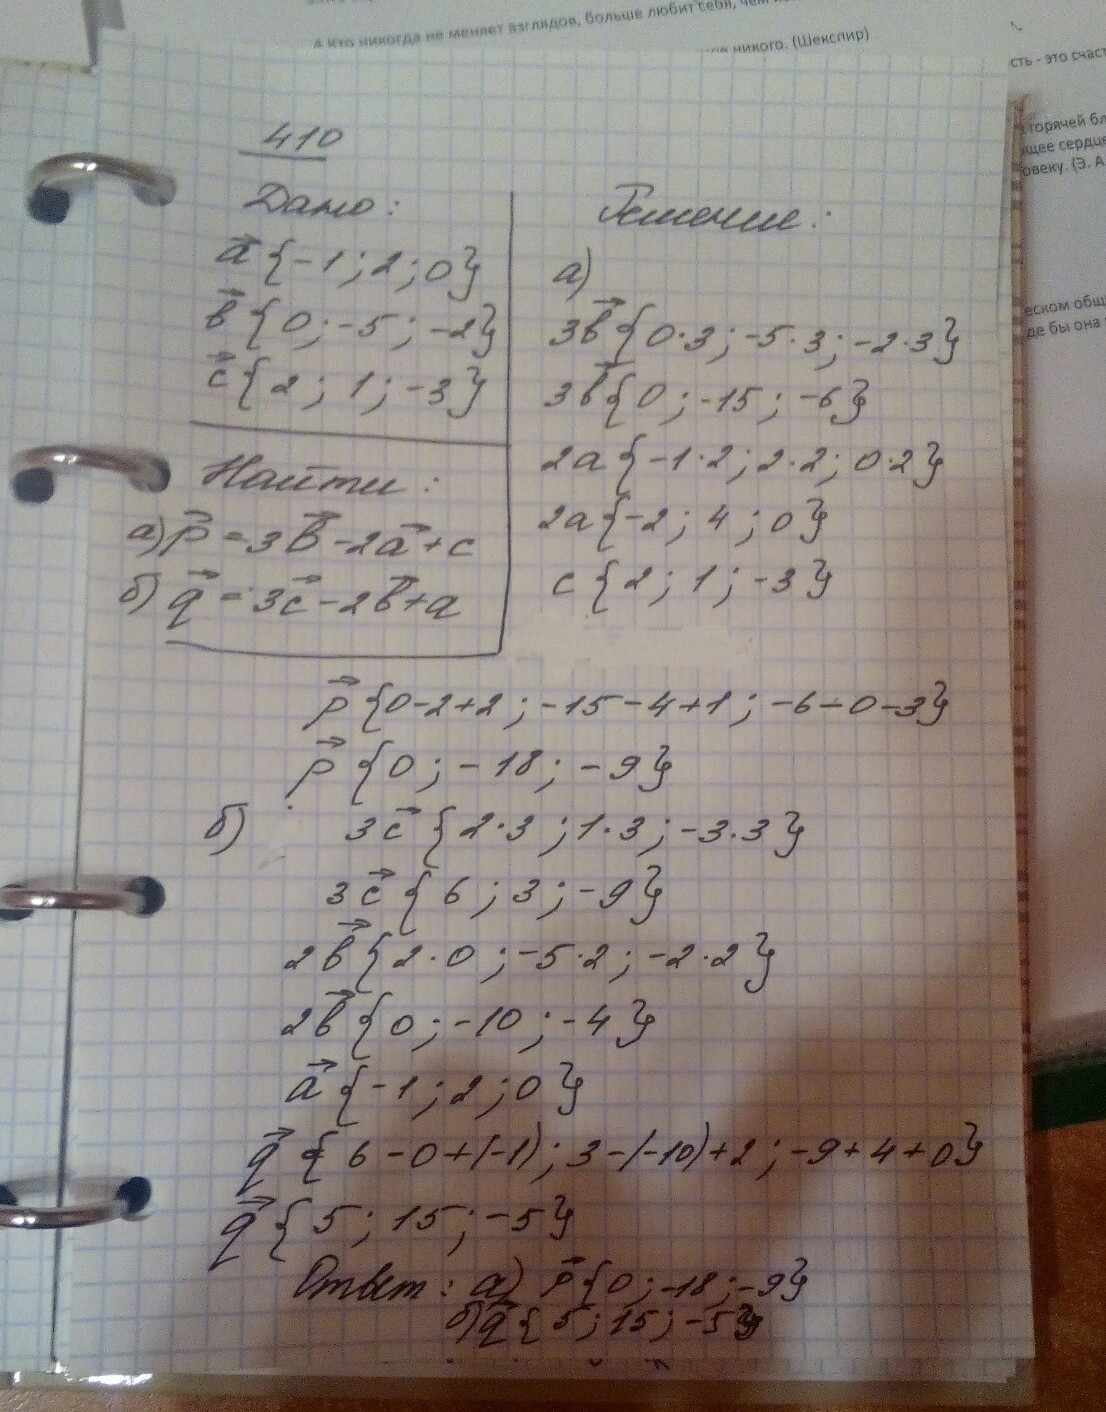 А кто никогда не меняет взглядов, больше любит себя, чем
никого. (Шекспир)
сть - это счаст
горячей бл
щее сердце
овеку. (Э. А
еском общ
де бы она
410
Дано:
a⃗ {-1; 2; 0}
b⃗ {0; -5; -2}
c⃗ {2; 1; -3}
Найти:
а) p⃗ = 3b⃗ - 2a⃗ + c
б) q⃗ = 3c⃗ - 2b⃗ + a
Решение:
а)
3b⃗ {0·3; -5·3; -2·3}
3b⃗ {0; -15; -6}
2a {-1·2; 2·2; 0·2}
2a {-2; 4; 0}
c {2; 1; -3}
p⃗ {0-2+2; -15-4+1; -6-0-3}
p⃗ {0; -18; -9}
б) 3c⃗ {2·3; 1·3; -3·3}
3c⃗ {6; 3; -9}
2b⃗ {2·0; -5·2; -2·2}
2b⃗ {0; -10; -4}
a⃗ {-1; 2; 0}
q⃗ {6-0+(-1); 3-(-10)+2; -9+4+0}
q⃗ {5; 15; -5}
Ответ: а) p⃗ {0; -18; -9}
б) q⃗ {5; 15; -5}